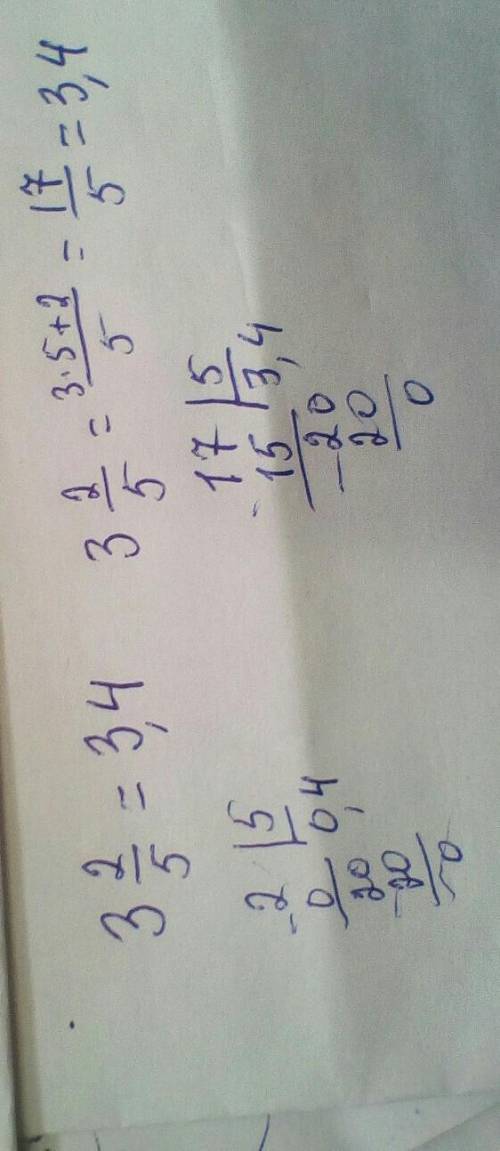 3 2/5 = 3,4
2 | 5
- 0 | 0,4
20
- 20
0
3 2/5 = (3·5+2)/5 = 17/5 = 3,4
17 | 5
- 15 | 3,4
- 20
20
0